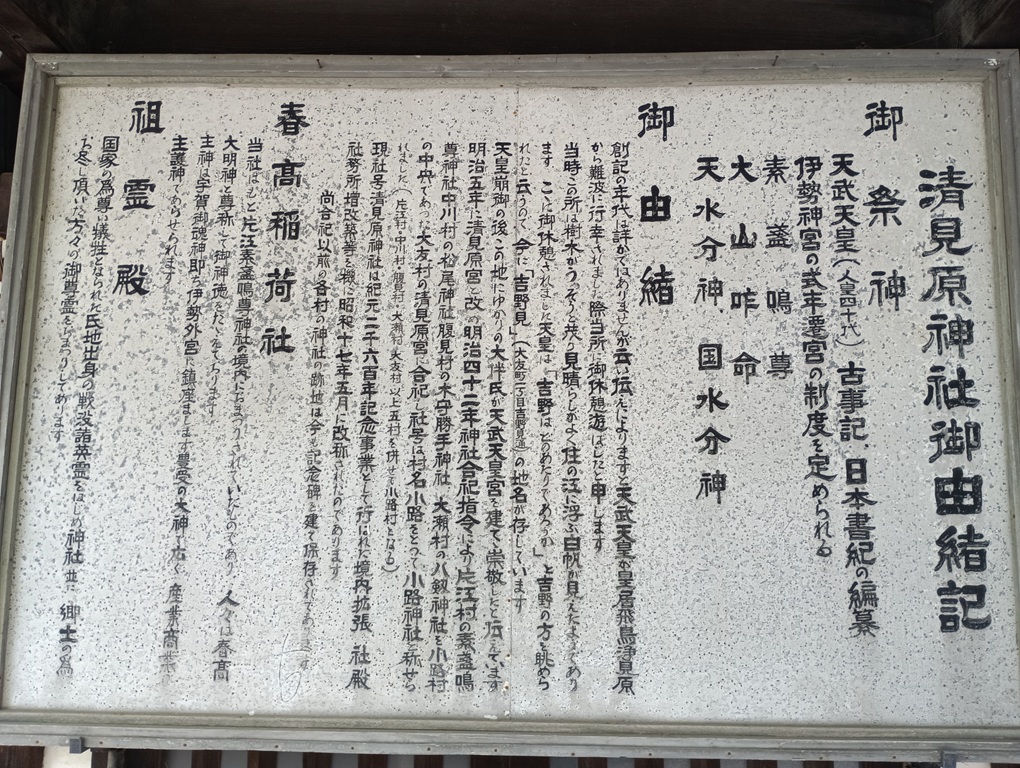 清見原神社御由緒記
御祭神
天武天皇(人皇四十代) 古事記、日本書紀の編纂
伊勢神宮の式年遷宮の制度を定められる
素盞嗚尊
大山咋命
天水分神、国水分神
御由緒
創記の年代は詳かではありませんが云い伝えによりますと天武天皇が皇居飛鳥浄見原
から難波に行幸されました際当所に御休憩遊ばしたと申します
当時この所は樹木がうっそうと共り見晴らしがよく住の江に浮ぶ白帆が見えたようであり
ます こゝに御休憩されました天皇は「吉野はどのあたりであろうか」と吉野の方を眺めら
れたと云うので 今に「吉野見」(大友町一丁目吉野見辺)の地名が存しています
天皇崩御の後この地にゆかりの大伴氏が天武天皇宮を建て、崇敬したと伝えています
明治五年に清見原宮と改め明治四十二年神社合祀指令により片江村の素盞嗚
尊神社中川村の松尾神社腹見村の木守勝手神社 大瀬村の八剱神社を小路村
の中央であった大友村の清見原宮に合祀し社号は村名小路をとって小路神社と称せら
れました(片江村・中川村・腹見村・大瀬村・大友村以上五村を併せて小路村となる)
現社号清見原神社は紀元二千六百年記念事業として行はれた境内拡張 社殿
社務所増改築等を機に昭和十七年五月に改称されたのであります
尚合祀以前の各村の神社の跡地は今も記念碑を建て保存されてあります
春高稲荷社
当社はもと片江素盞嗚尊神社の境内におまつりされていたものであり 人々は春高
大明神と尊称して御神徳をたゝえております
主神は宇賀御魂神即ち伊勢外宮に鎮座まします豊受の大神で在す 産業商業
主護神であらせられます
祖霊殿
国家の為尊い犠牲となられた氏地出身の戦没諸英霊をはじめ神社並に 郷土の為
お尽し頂いた方々の御尊霊をおまつりしてあります